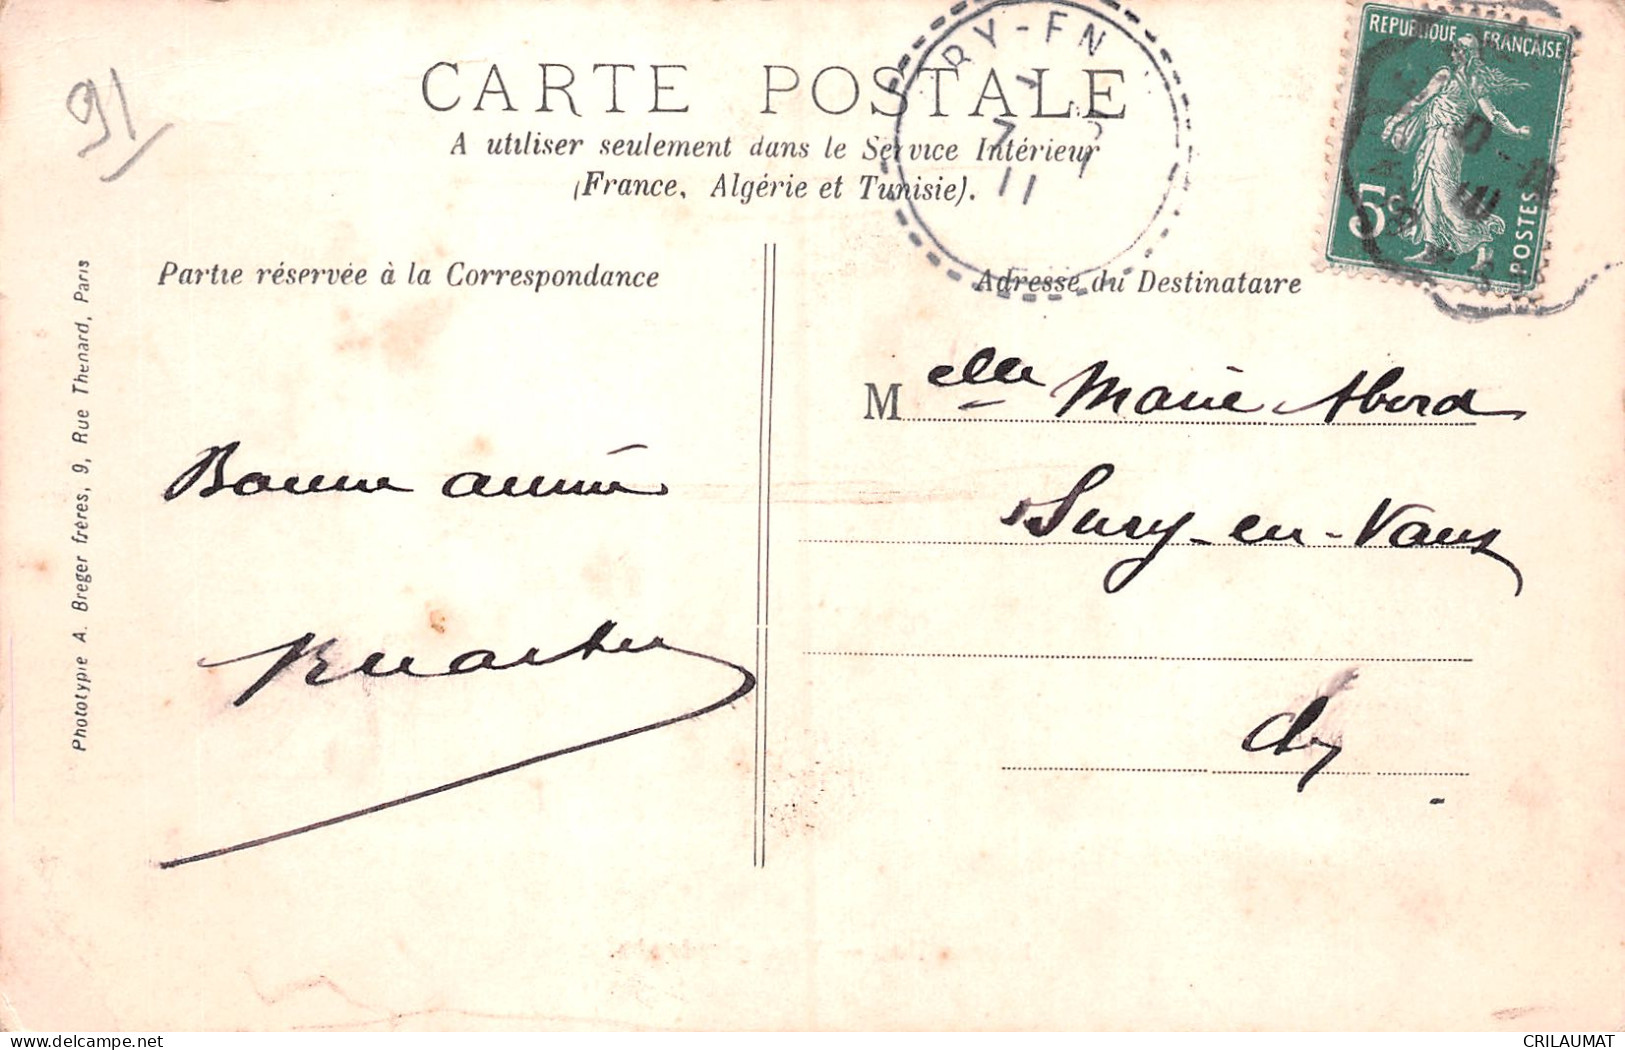 CARTE POSTALE
A utiliser seulement dans le Service Intérieur
(France, Algérie et Tunisie).
RY-EN
7
11
REPUBLIQUE FRANÇAISE
5c
POSTES
91
Partie réservée à la Correspondance
Adresse du Destinataire
Melle Marie Abord
Sury-en-Vaux
Bonne année
Phototypie A. Breger frères, 9, Rue Thenard, Paris
CRILAUMAT